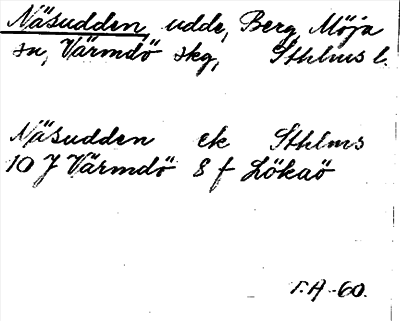 Näsudden, udde, Berg, Möja
sn, Värmdö skg, Sthlms l.
Näsudden ek Sthlms
10 J Värmdö S f Lökaö
T.A -60.